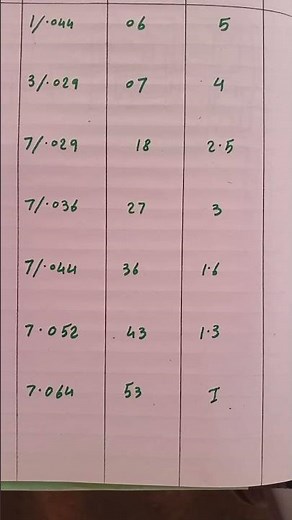 1/.044 06 5
3/.029 07 4
7/.029 18 2.5
7/.036 27 3
7/.044 36 1.6
7.052 43 1.3
7.064 53 I